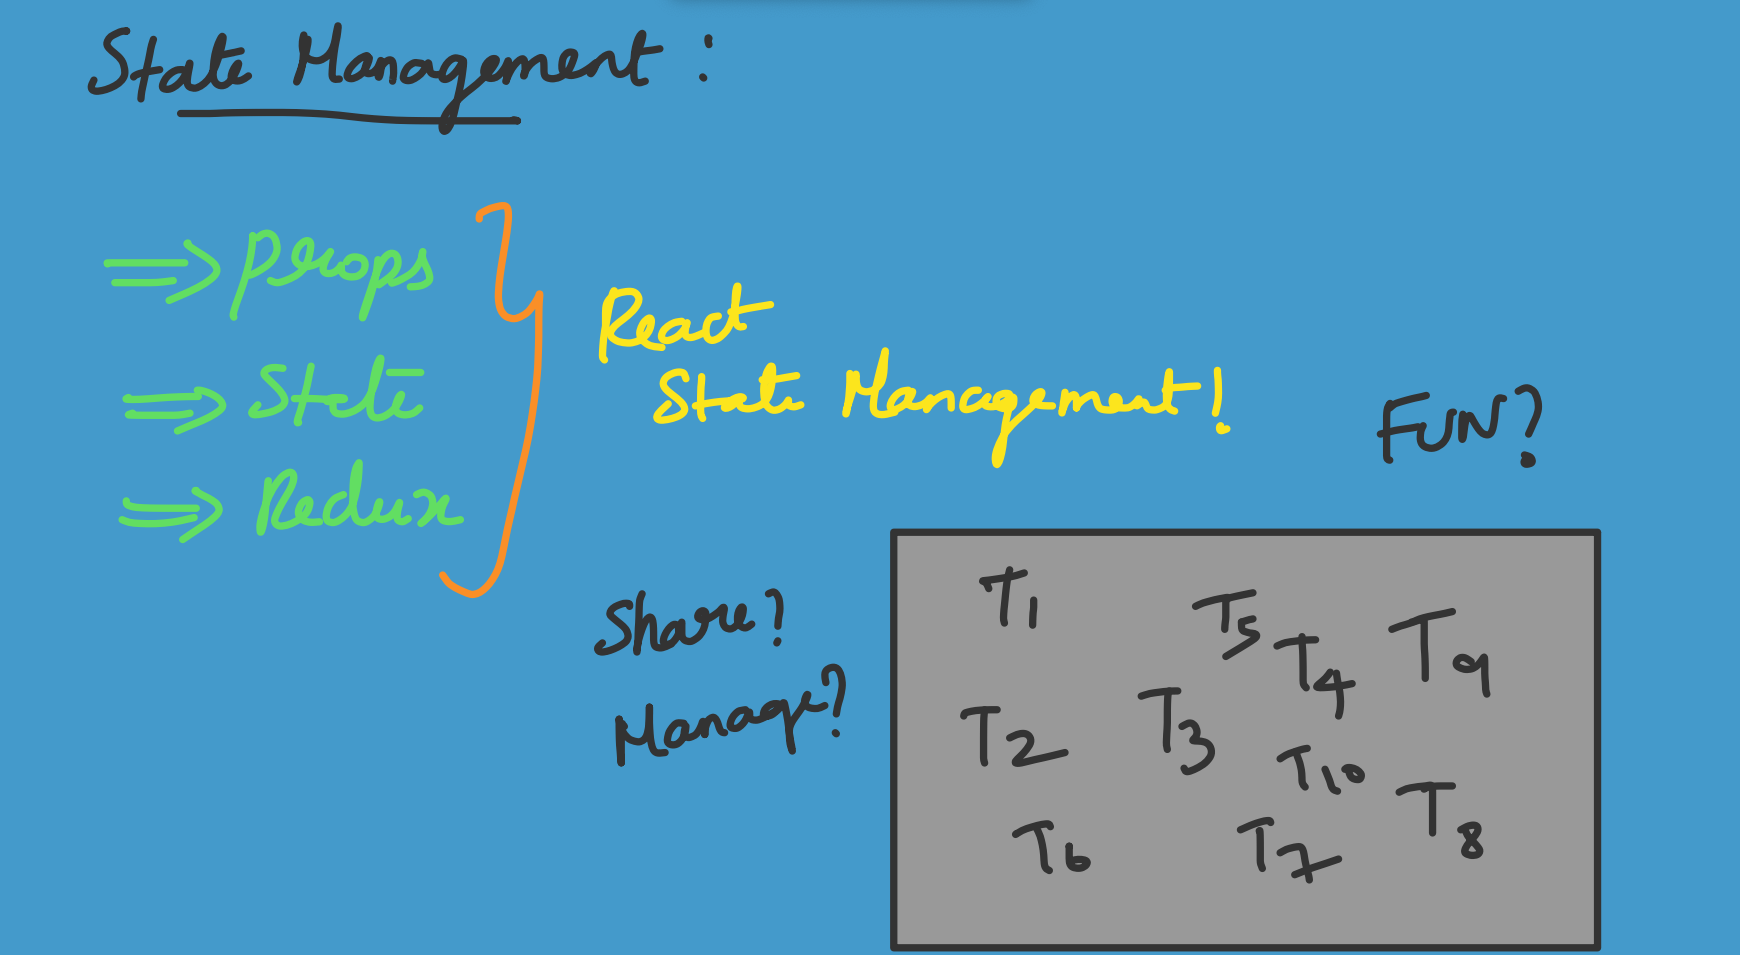 State Management :
⇒ props
⇒ State
⇒ Redux
React
State Management!
FUN?
Share?
Manage?
T1
T5
T4
T9
T2
T3
T10
T8
T6
T7